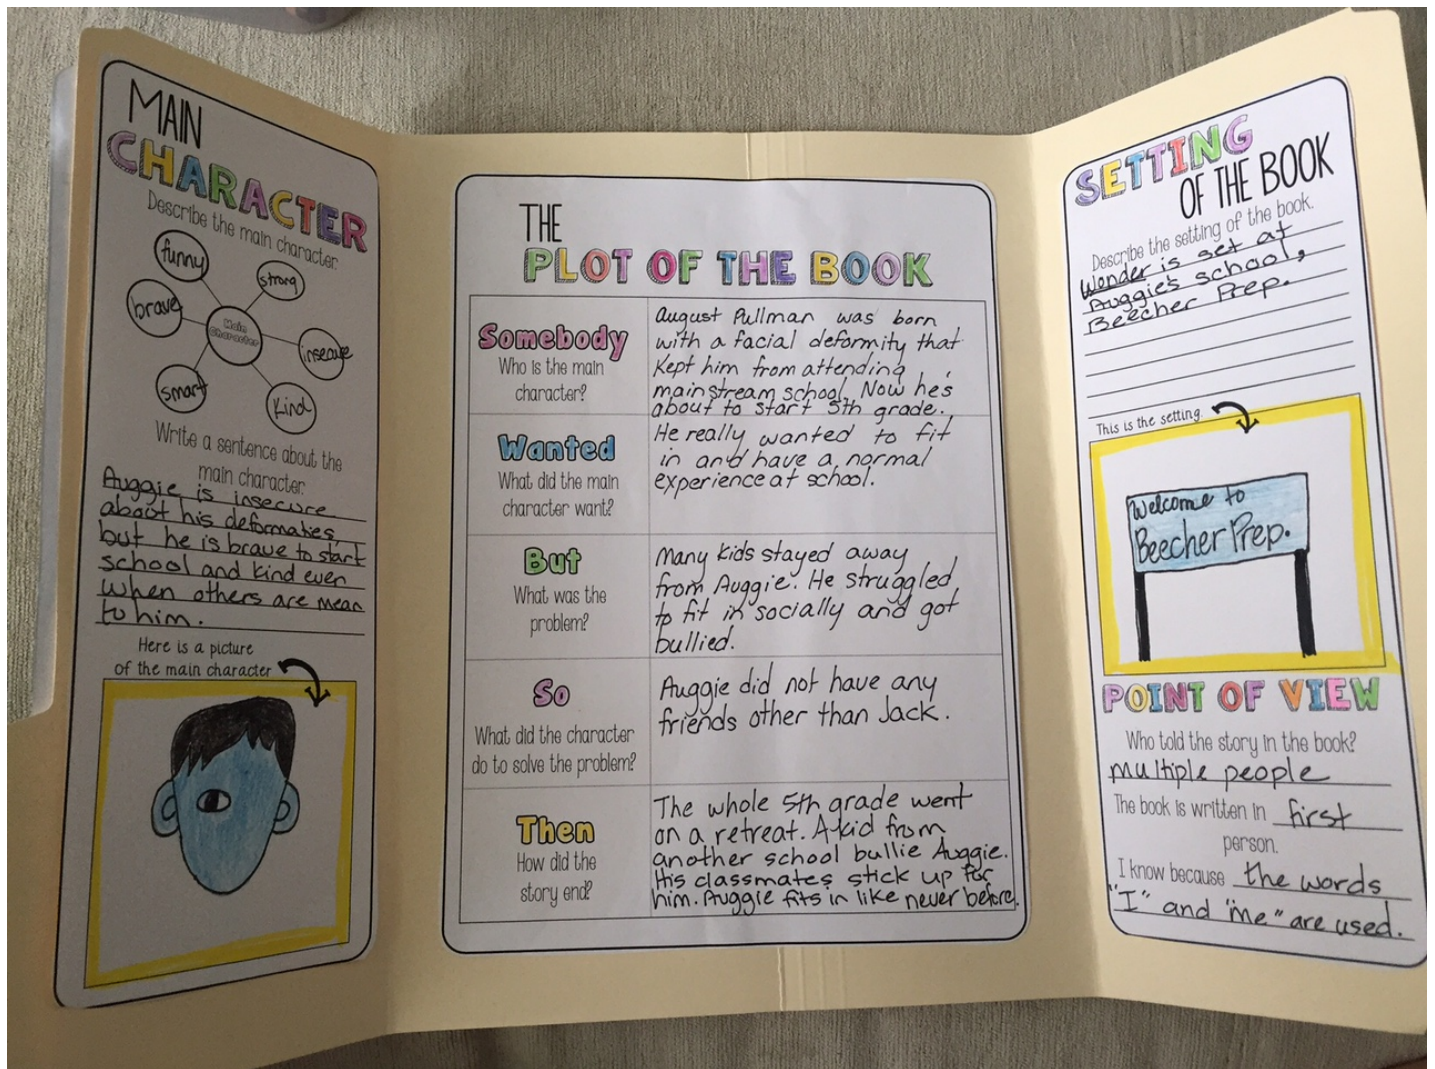 MAIN
CHARACTER
Describe the main character.
funny
strong
brave
Main
Character
insecure
smart
kind
Write a sentence about the
main character.
Auggie is insecure
about his deformaties,
but he is brave to start
school and kind even
when others are mean
to him.
Here is a picture
of the main character
THE
PLOT OF THE BOOK
Somebody
Who is the main
character?
August Pullman was born
with a facial deformity that
kept him from attending
mainstream school. Now he's
about to start 5th grade.
Wanted
What did the main
character want?
He really wanted to fit
in and have a normal
experience at school.
But
What was the
problem?
Many kids stayed away
from Auggie. He struggled
to fit in socially and got
bullied.
So
What did the character
do to solve the problem?
Auggie did not have any
friends other than Jack.
Then
How did the
story end?
The whole 5th grade went
on a retreat. A kid from
another school bullie Auggie.
His classmates stick up for
him. Auggie fits in like never before.
SETTING
OF THE BOOK
Describe the setting of the book.
Wonder is set at
Auggie's school,
Beecher Prep.
This is the setting
Welcome to
Beecher Prep.
POINT OF VIEW
Who told the story in the book?
multiple people
The book is written in first
person.
I know because the words
"I" and "me" are used.